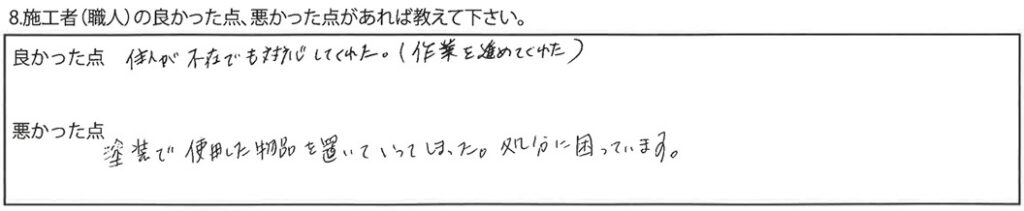 8.施工者(職人)の良かった点、悪かった点があれば教えて下さい。
良かった点 住人が不在でも対応してくれた。(作業を進めてくれた)
悪かった点
塗装で使用した物品を置いていってしまった。処分に困っています。